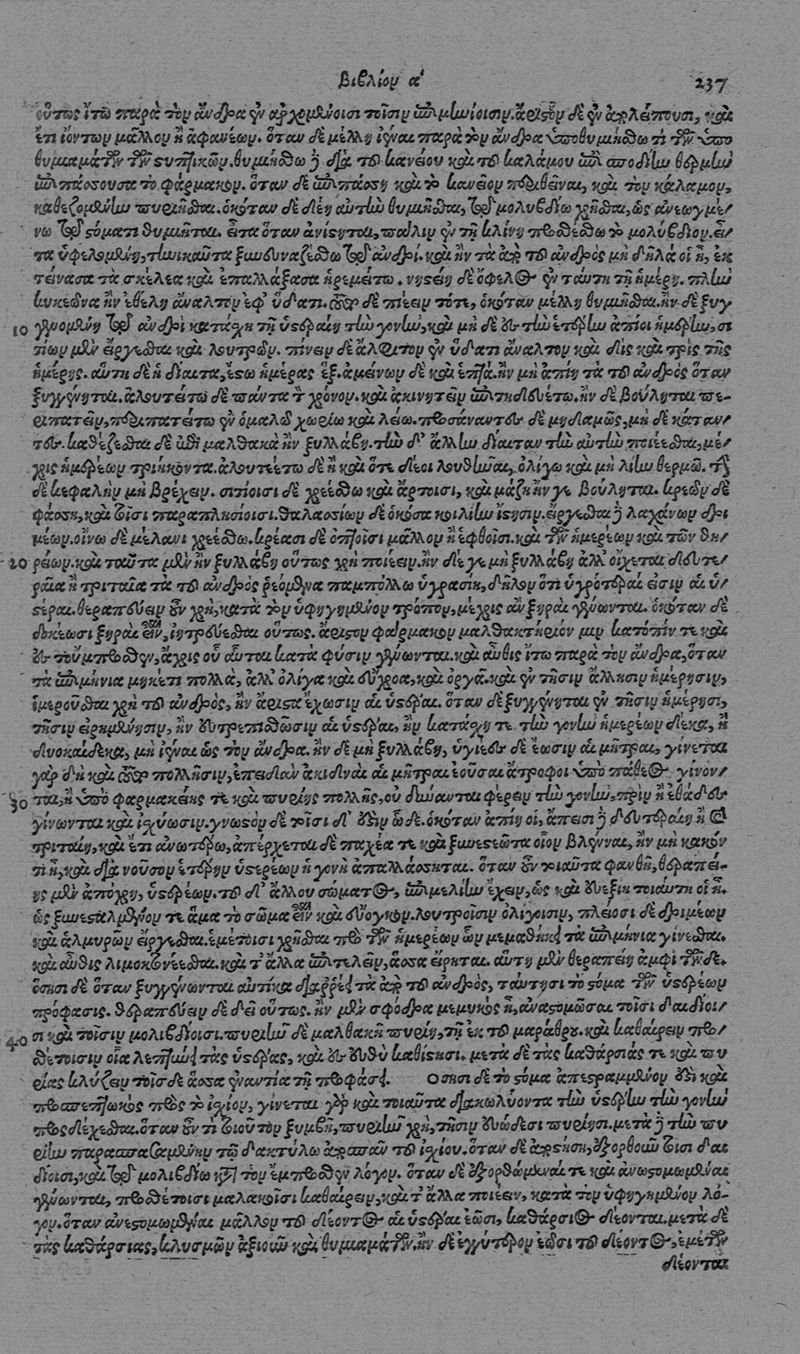 βιβλίον α΄ 237
οὕτως ἴτω παρὰ τὸν ἄνδρα ἐν ἀρχομένοισι τοῖσιν ἐπιμηνίοισιν. ἄριστον δὲ ἐν ἀπολείπουσι, καὶ
ἔτι ἰόντων μᾶλλον ἢ ἀφανέων. ὅταν δὲ μέλλῃ ἰέναι παρὰ τὸν ἄνδρα ὑποθυμιήσθω τι τῶν ὑπο
θυμιαμάτων τῶν στυπτικῶν. θυμιήσθω δὲ διὰ τοῦ κανείου καὶ τοῦ καλάμου ἐπὶ σποδιὴν θερμὴν
ἐπιπάσσουσα τὸ φάρμακον. ὅταν δὲ ἐπιπάσῃ καὶ τὸ κανεῖον περιθεῖναι, καὶ τὸν κάλαμον,
καθεζομένην πυριῆσθαι. ὁκόταν δὲ δέῃ αὐτὴν θυμιῆσθαι, τῷ μολυβδίῳ χρῆσθαι, ὡς ἀνεωγμέ/
νῳ τῷ στόματι θυμιῆται. εἶτα ὅταν ἀνίστηται, πάλιν ἐν τῇ κλίνῃ προσθέσθω τὸ μολύβδιον. εἶ/
τα ὑφελομένη, τηνικαῦτα ξυνδυναζέσθω τῷ ἀνδρί. καὶ ἢν τὰ ἀπὸ τοῦ ἀνδρὸς μὴ δῆλά οἱ ᾖ, ἐκ
τείνασα τὰ σκέλεα καὶ ἐπαλλάξασα ἠρεμείτω. νῆστιν δὲ ὄφελος ἐν ταύτῃ τῇ ἡμέρῃ. πλὴν
κυκεῶνα ἢν ἐθέλῃ ἄναλτον ἐφ' ὕδατι. πιεῖν τότε, ὁκόταν μέλλῃ θυμιῆσθαι. ἢν δὲ ξυγ
10 γενομένη τῷ ἀνδρὶ κατάσχῃ τῇ ὑστεραίῃ τὴν γονὴν, καὶ μὴ δὲ ἐς τὴν ἑτέρην ἀπίοι ἡμέρην, σι
τίων μὲν εἴργεσθαι καὶ λουτρῶν. πίνειν δὲ ἄλφιτον ἐν ὕδατι ἄναλτον καὶ δὶς καὶ τρὶς τῆς
ἡμέρης. αὕτη δὲ ἡ δίαιτα, ἔστω ἡμέρας ἓξ. ἄμεινον δὲ καὶ ἑπτά. ἢν μὴ ἀπίῃ τὰ τοῦ ἀνδρὸς ὅταν
ξυγγένηται. ἀλουτείτω δὲ πάντα τὸν χρόνον. καὶ ἀκινητεῖν ἐπιτηδευέτω. ἢν δὲ βούληται πε-
ριπατεῖν, περιπατείτω ἐν ὁμαλῷ χωρίῳ καὶ λείῳ. προσάναντες δὲ μηδαμῶς, μὴ δὲ κάταν/
τες. καθέζεσθαι δὲ ἐπὶ μαλθακὰ ἢν ξυλλάβῃ. τὴν δ' ἄλλην δίαιταν τὴν αὐτὴν ποιέεσθαι, μέ/
χρις ἡμερέων τριήκοντα. ἀλουτείτω δὲ ἢ καὶ ὅτε δέοι λουθῆναι, ὀλίγῳ καὶ μὴ λίην θερμῷ. τὴν
δὲ κεφαλὴν μὴ βρέχειν. σιτίοισι δὲ χρεέσθω καὶ ἄρτοισι, καὶ μάζῃ ἤν γε βούληται. κρεῶν δὲ
φάσσῃ, καὶ τοῖσι παραπλησίοισι. θαλασσίων δὲ ὁκόσα κοιλίην ἵστησιν. εἰργέσθω δὲ λαχάνων δρι
μέων. οἴνῳ δὲ μέλανι χρεέσθω. κρέασι δὲ ὀπτοῖσι μᾶλλον ἢ ἑφθοῖσι. καὶ τῶν ἡμερέων καὶ τῶν θη/
20 ρείων. καὶ ταῦτα μὲν ἢν ξυλλάβῃ οὕτως χρὴ ποιέειν. ἢν δέ γε μὴ ξυλλάβῃ ἀλλ' οἴχεται δευτε/
ραῖα ἢ τριταῖα τὰ τοῦ ἀνδρὸς ῥεόμενα παμπόλλῳ ὑγρασίῃ, δῆλον ὅτι ὑγρότεραί εἰσιν αἱ ὑ/
στέραι. θεραπεύειν οὖν χρὴ, κατὰ τὸν ὑφηγημένον τρόπον, μέχρις ἂν ξηραὶ γένωνται. ὁκόταν δὲ
δοκέωσι ξηραὶ εἶναι, ἰητρεύεσθαι οὕτως. ἄριστον φάρμακον μαλθακτήριόν μιν κατόπιν τε καὶ
ἐς τοὔμπροσθεν, ἄχρις οὗ αὗται κατὰ φύσιν γένωνται. καὶ αὖθις ἴτω παρὰ τὸν ἄνδρα, ὅταν
τὰ ἐπιμήνια μηκέτι πολλὰ, ἀλλ' ὀλίγα καὶ εὔχροα, καὶ ὀργᾷ. καὶ ἐν τῇσιν ἄλλῃσιν ἡμέρῃσιν,
ἱμεροῦσθαι χρὴ τοῦ ἀνδρὸς, ἢν ἄριστα ἔχωσιν αἱ ὑστέραι. ὅταν δὲ ξυγγένηται ἐν τῇσιν ἡμέρῃσι,
τῇσιν εἰρημένῃσιν, ἢν εὐτρεπισθῶσιν αἱ ὑστέραι, ἢν κατάσχῃ τε τὴν γονὴν ἡμερέων δέκα, ἢ
δυοκαίδεκα, μὴ ἰέναι ὡς τὸν ἄνδρα. ἢν δὲ μὴ ξυλλάβῃ, ὑγιέες δὲ ἔωσιν αἱ μῆτραι, γίνεται
γὰρ δὴ καὶ πολλῇσιν, ἐπειδὰν ἀκιδναὶ αἱ μῆτραι ἐοῦσαι ἄτροφοι ὑπὸ πάθεος γίνον/
30 ται, ἢ ὑπὸ φαρμακείης τε καὶ πυρίης πολλῆς, οὐ δύνανται φέρειν τὴν γονὴν, πρὶν ἢ εὐαδέες
γίνωνται καὶ ἰσχύωσιν. γνωστὸν δὲ τοῖσι δ' ἐστὶν ὧδε. ὁκόταν ἀπίῃ οἱ, ἄπεισι τῇ δευτεραίῃ ἢ τῇ
τριταίῃ, καὶ ἔτι ἀνωτέρω, ἀπέρχεται δὲ παχέα τε καὶ ξυνεστῶτα οἷον βλένναι, ἢν μὴ κακόν
τι ᾖ, καὶ διὰ νοῦσον ἑτέρην ὑστερέων ἡ γονὴ ἀπαλλάσσηται. ὅταν οὖν τοιαῦτα φανθῇ, θεραπεί-
ης μὲν ἀπόχρη, ὑστερέων. τοῦ δ' ἄλλου σώματος, ἐπιμελίην ἔχειν, ὡς καὶ εὐεξίη τοιαύτη οἱ ᾖ.
ὡς ξυνεσταλμένον τε ἅμα τὸ σῶμα εἶναι καὶ εὔογκον. λουτροῖσιν ὀλίγοισιν, πλέοσι δὲ δριμέων
καὶ ἁλμυρῶν εἴργεσθαι. ἐμέτοισι χρῆσθαι πρὸ τῶν ἡμερέων ὧν μεμαθήκει τὰ ἐπιμήνια γίνεσθαι.
καὶ αὖθις λιμοκτονέεσθαι. καὶ τ' ἄλλα ἐπιτελεῖν, ἅσσα εἴρηται. αὕτη μὲν θεραπείη ἀμφὶ τῶνδε.
ὅσῃσι δὲ ὅταν ξυγγένωνται αὐτίκα διαρρέει τὰ ἀπὸ τοῦ ἀνδρὸς, ταύτῃσι τὸ στόμα τῶν ὑστερέων
πρόφασις. θεραπεύειν δὲ δεῖ οὕτως. ἢν μὲν σφόδρα μεμυκὸς ᾖ, ἀναστομῶσαι τοῖσι δαιδίοι/
σι καὶ τοῖσιν μολιβδίοισι. πυριῆν δὲ μαλθακῇ πυρίῃ, τῇ ἐκ τοῦ μαράθρου. καὶ καθαίρειν προσ/
40 θέτοισιν οἷα λεπτύνει τὰς ὑστέρας, καὶ ἐς εὐθὺ καθίστησι. μετὰ δὲ τὰς καθάρσιάς τε καὶ πυ
ρίας κλύζειν τοῖσδε ἅσσα ἐναντία τῇ προφάσει. Ὅσῃσι δὲ τὸ στόμα ἀπεστραμμένον ἐστὶ καὶ
προσπεπτωκὸς πρὸς τὸ ἰσχίον, γίνεται γὰρ καὶ τοιαῦτα διακωλύοντα τὴν ὑστέρην τὴν γονὴν
προσδέχεσθαι. ὅταν οὖν τι τοιοῦτον ξυμβῇ, πυριῆν χρὴ, τῇσιν εὐώδεσι πυρίῃσι. μετὰ δὲ τὴν πυ
ρίην παραψαυσαμένην τῷ δακτύλῳ ἀποσπᾶν τοῦ ἰσχίου. ὅταν δὲ ἀποστήσῃ, ἐξορθοῦν τοῖσι δαι
δίοισι, καὶ τῷ μολιβδίῳ κατὰ τὸν ἔμπροσθεν λόγον. ὅταν δὲ ἐξορθωμέναι τε καὶ ἀνεστομωμέναι
γένωνται, προσθέτοισι μαλακοῖσι καθαίρειν, καὶ τ' ἄλλα ποιέειν, κατὰ τὸν ὑφηγημένον λό-
γον. ὅταν ἀνεστομωμέναι μᾶλλον τοῦ δέοντος αἱ ὑστέραι ἔωσι, καθάρσιος δέονται. μετὰ δὲ
τὰς καθάρσιας, κλυσμῶν ἀξιοῦν καὶ θυμιαμάτων. ἢν δὲ ἐγγύτερον ἔωσι τοῦ δέοντος, ἐμέτων
δέονται